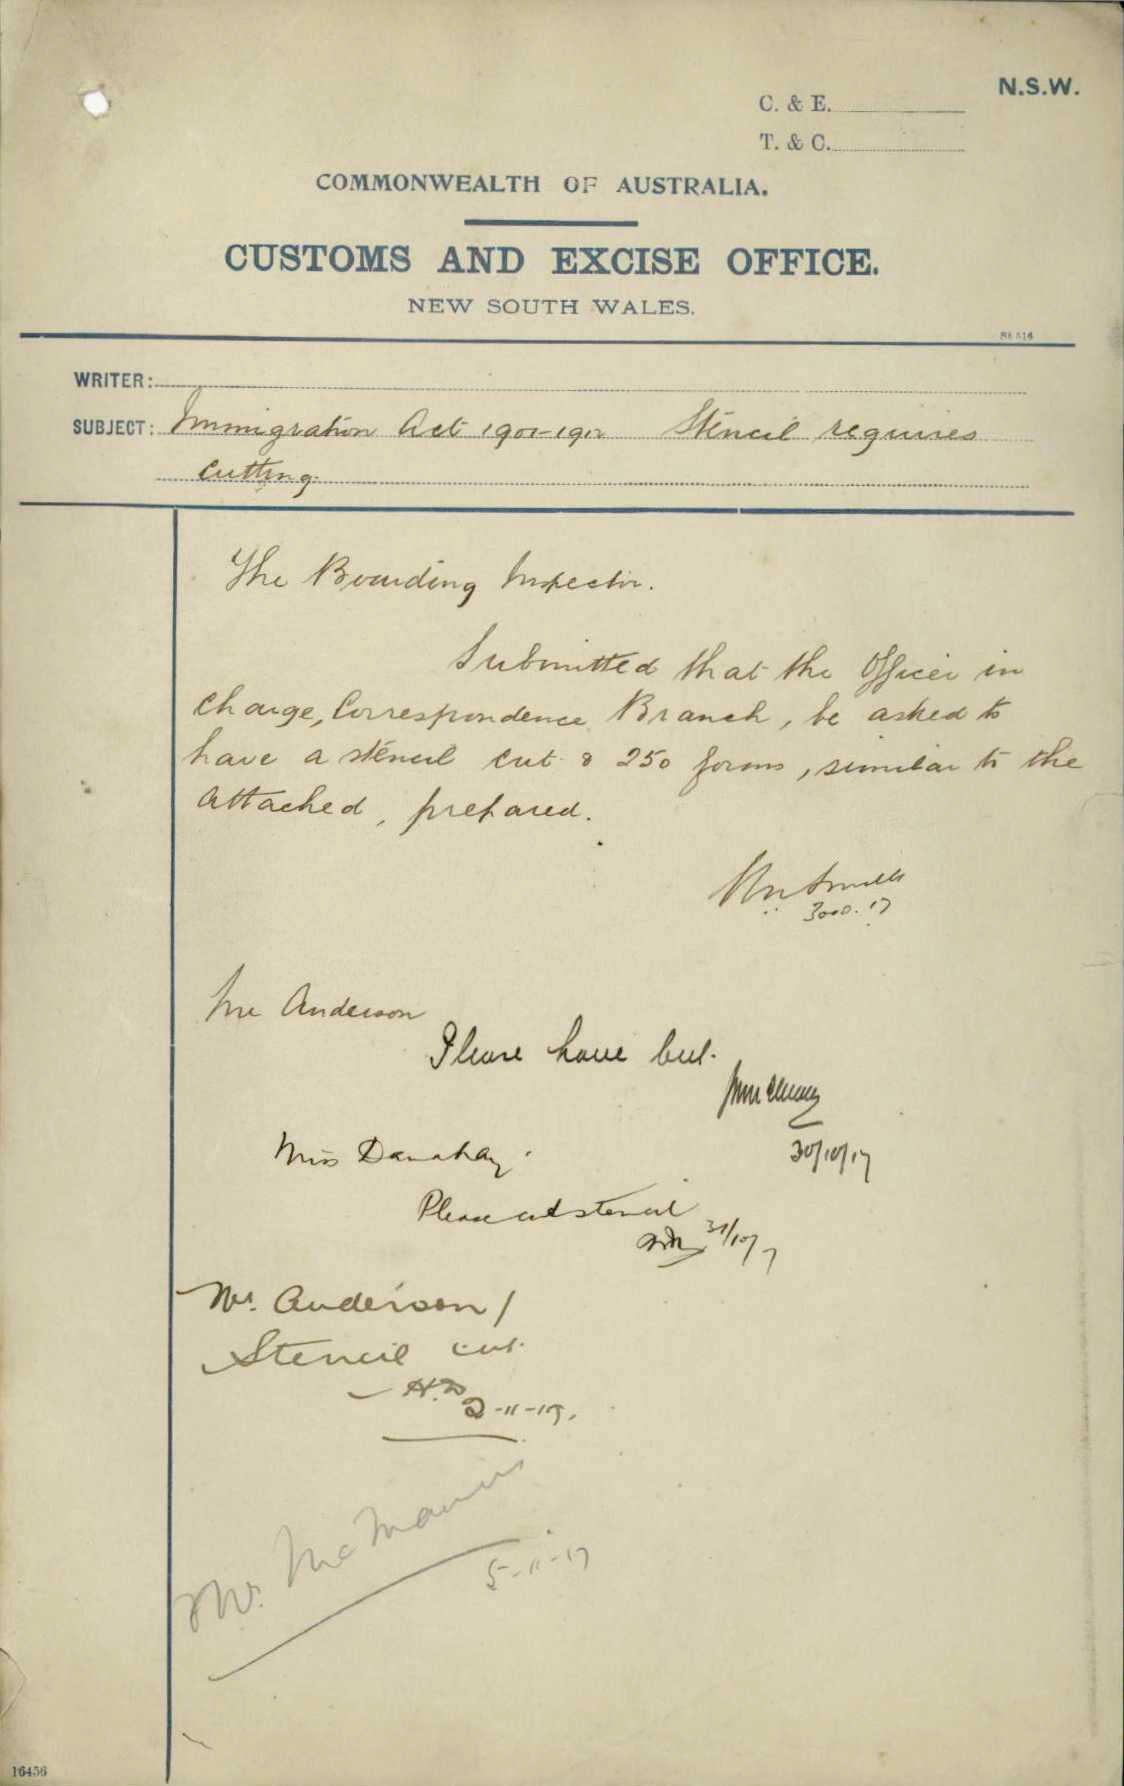 N.S.W.
C. & E.
T. & C.
COMMONWEALTH OF AUSTRALIA.
CUSTOMS AND EXCISE OFFICE.
NEW SOUTH WALES.
WRITER:
SUBJECT: Immigration Act 1901-1912 Stencil requires
cutting.
The Boarding Inspector.
Submitted that the Officer in
charge, Correspondence Branch, be asked to
have a stencil cut & 250 forms, similar to the
attached, prepared.
Mr Anderson
Please have cut.
30/10/17
Miss Danahay.
Please cut stencil
31/10/7
Mr. Anderson/
Stencil cut.
H.D
2-11-17.
Mr. McManus
5-11-17
16456